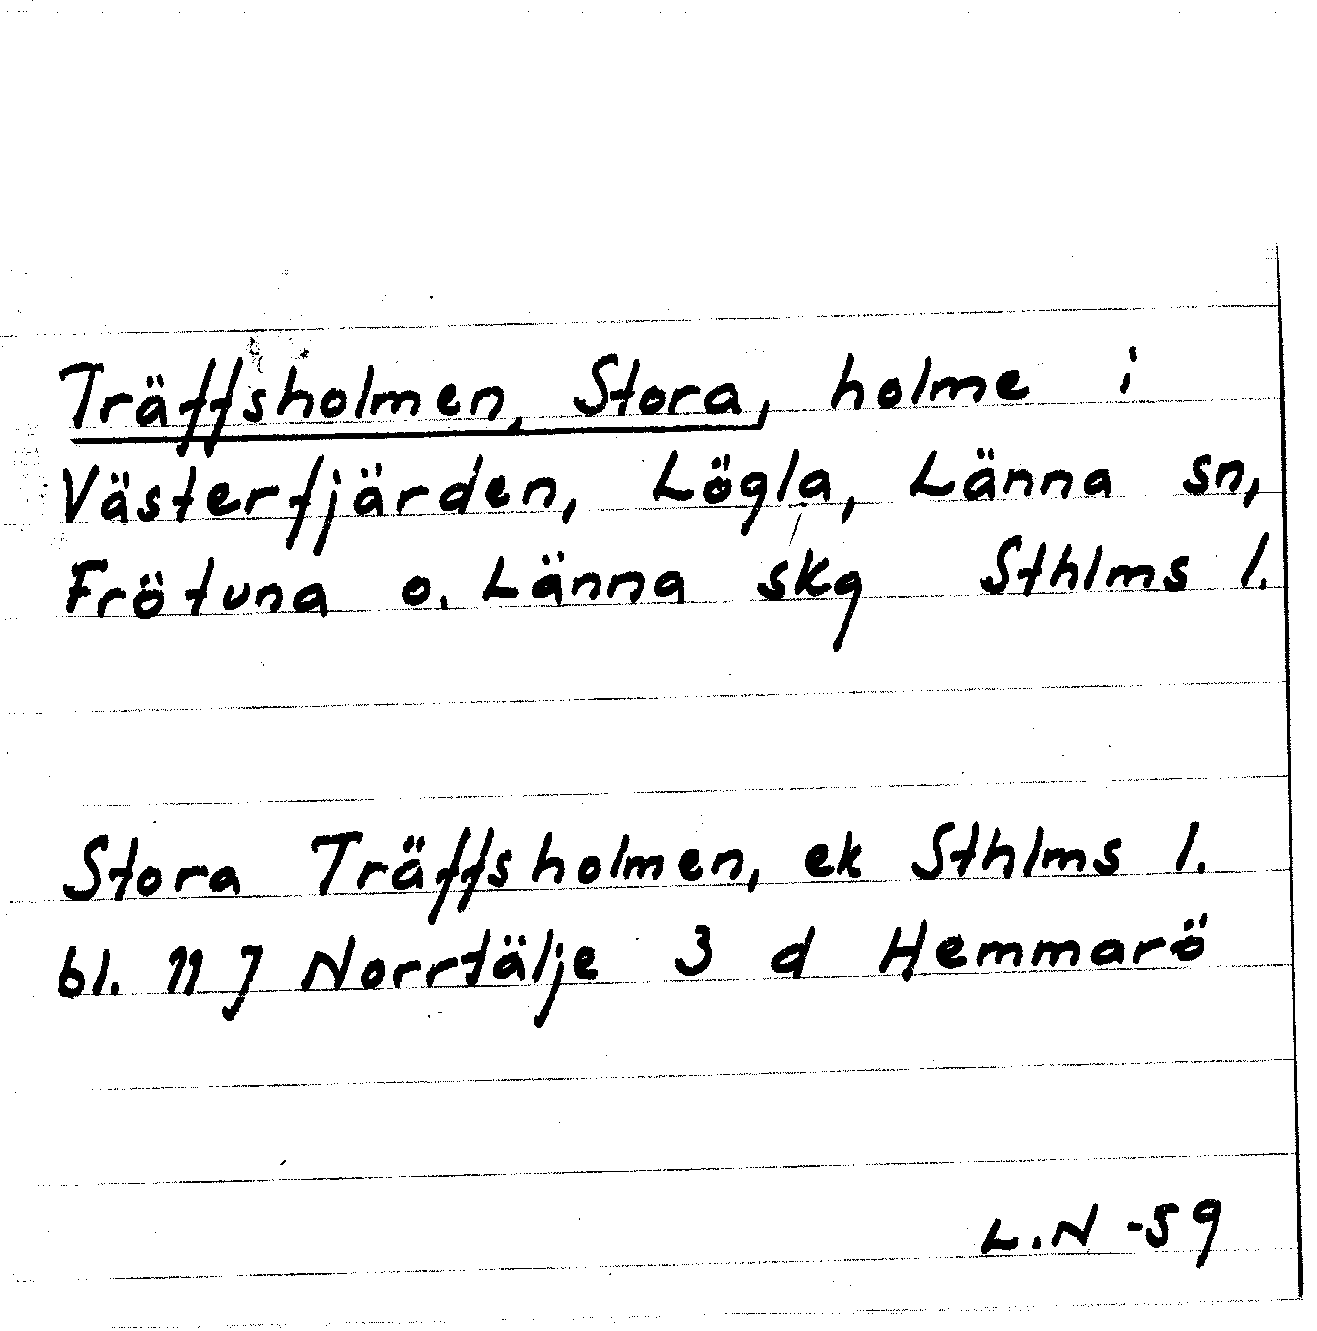 Träffsholmen, Stora, holme i
Västerfjärden, Lögla, Länna sn,
Frötuna o. Länna skg Sthlms l.
Stora Träffsholmen, ek Sthlms l.
bl. 11 J Norrtälje 3 d Hemmarö
L.N -59